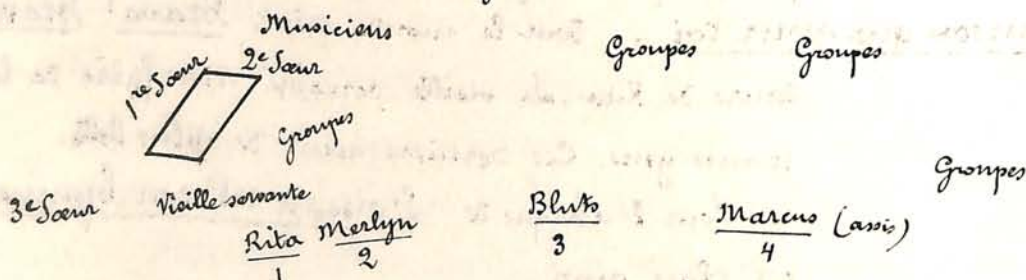 Musiciens
Groupes Groupes
1re Sœur 2e Sœur
Groupes
Groupes
3e Sœur Vieille servante
Rita Merlyn Bluts Marcus (assis)
1 2 3 4